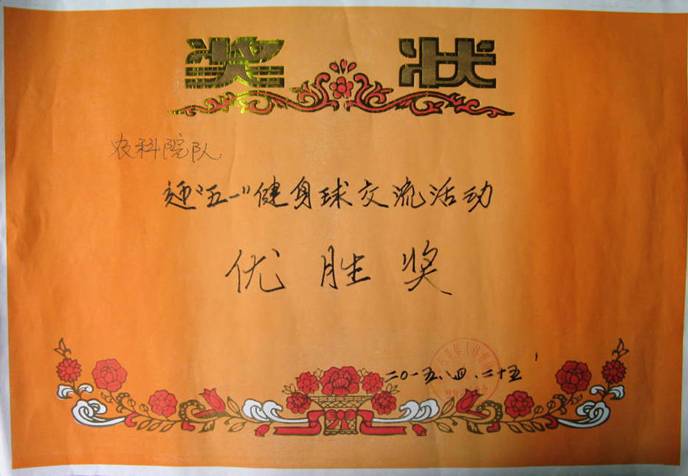 奖状
农科院队
迎“五一”健身球交流活动
优胜奖
二〇一五.四.二十五